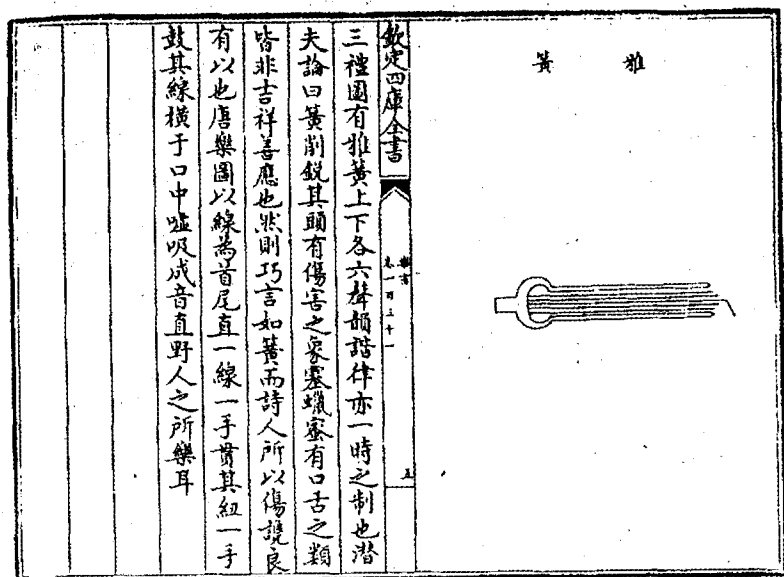 雅簧
欽定四庫全書
樂書
卷一百三十一
五
三禮圖有雅簧上下各六聲韻諧律亦一時之制也潛
夫論曰簧削銳其頭有傷害之象塞蠟蜜有口舌之類
皆非吉祥善應也然則巧言如簧而詩人所以傷讒良
有以也唐樂圖以線為首尾直一線一手貫其紐一手
鼓其線橫于口中噓吸成音直野人之所樂耳